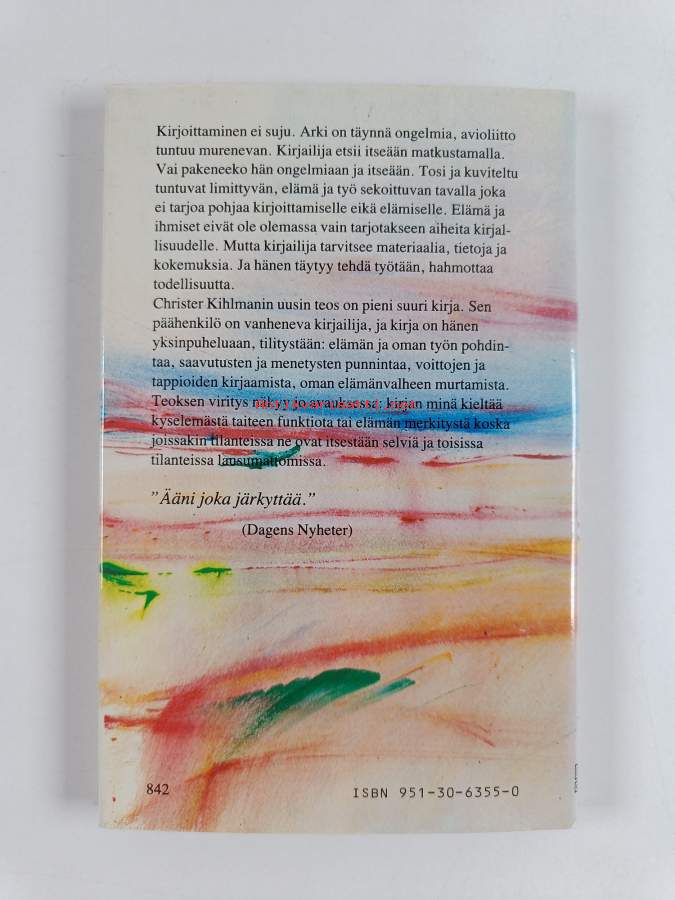 Kirjoittaminen ei suju. Arki on täynnä ongelmia, avioliitto
tuntuu murenevan. Kirjailija etsii itseään matkustamalla.
Vai pakeneeko hän ongelmiaan ja itseään. Tosi ja kuviteltu
tuntuvat limittyvän, elämä ja työ sekoittuvan tavalla joka
ei tarjoa pohjaa kirjoittamiselle eikä elämiselle. Elämä ja
ihmiset eivät ole olemassa vain tarjotakseen aiheita kirjal-
lisuudelle. Mutta kirjailija tarvitsee materiaalia, tietoja ja
kokemuksia. Ja hänen täytyy tehdä työtään, hahmottaa
todellisuutta.
Christer Kihlmanin uusin teos on pieni suuri kirja. Sen
päähenkilö on vanheneva kirjailija, ja kirja on hänen
yksinpuheluaan, tilitystään: elämän ja oman työn pohdin-
taa, saavutusten ja menetysten punnintaa, voittojen ja
tappioiden kirjaamista, oman elämänvalheen murtamista.
Teoksen viritys näkyy jo avauksessa: kirjan minä kieltää
kyselemästä taiteen funktiota tai elämän merkitystä koska
joissakin tilanteissa ne ovat itsestään selviä ja toisissa
tilanteissa lausumattomissa.
"Ääni joka järkyttää."
(Dagens Nyheter)
842
ISBN 951-30-6355-0